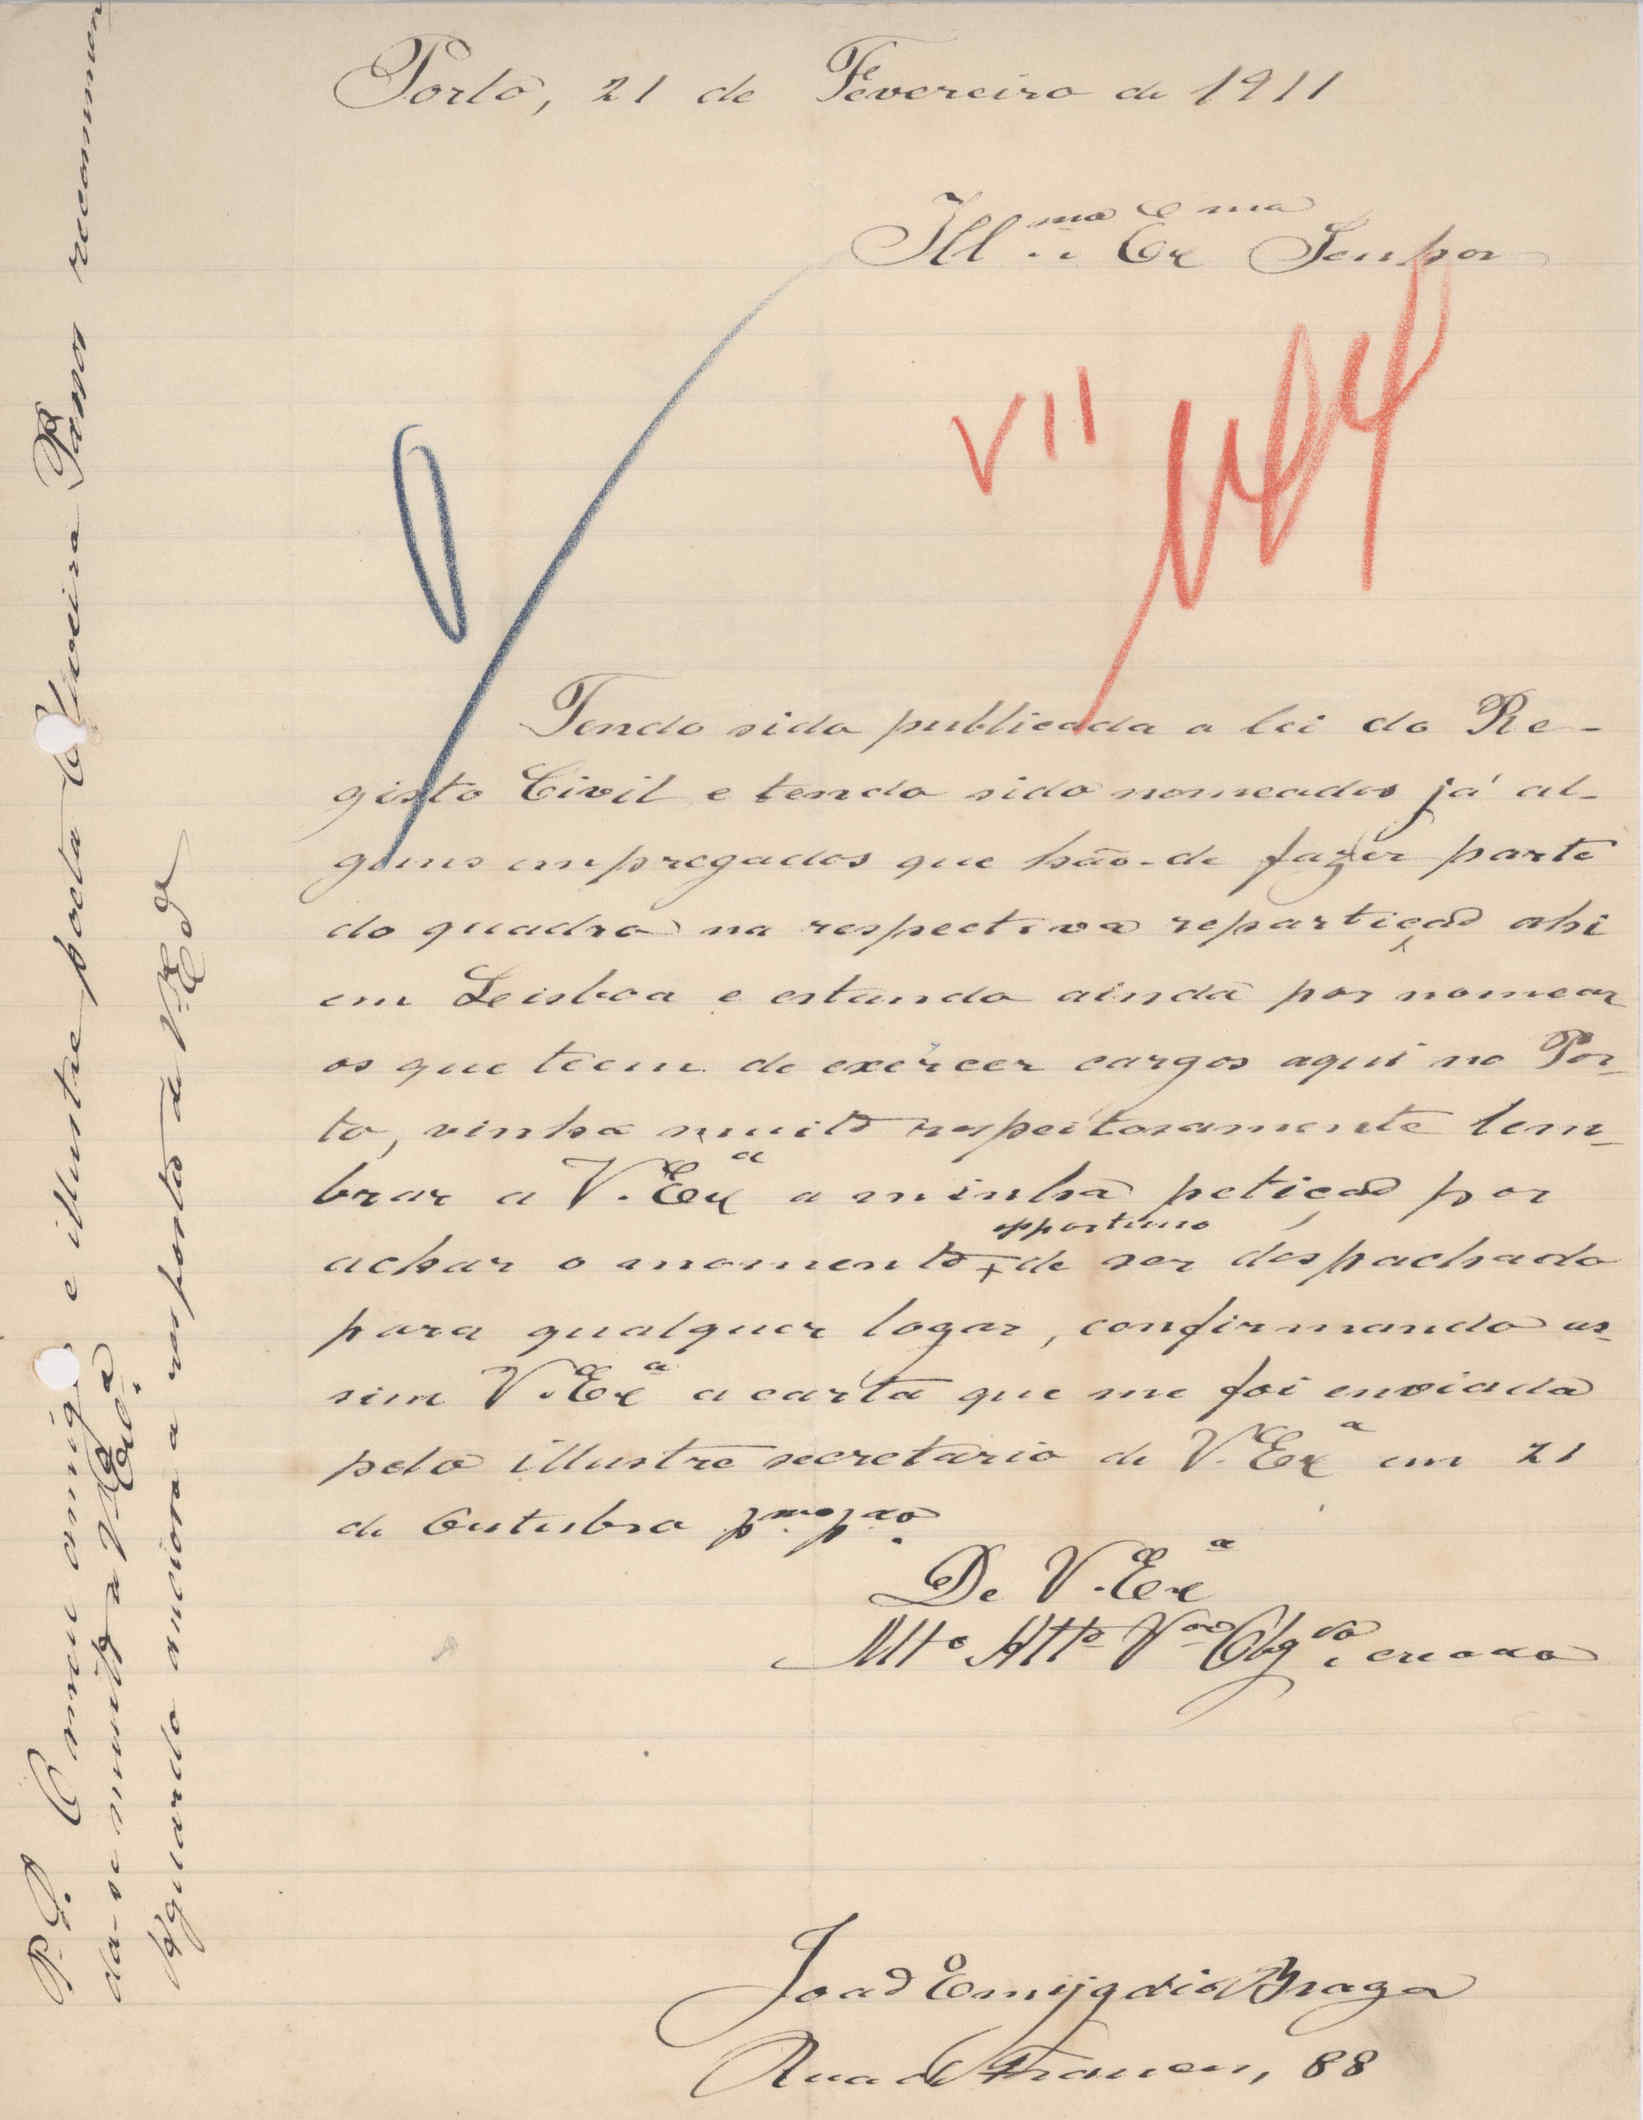 Porto, 21 de Fevereiro de 1911
Ill.mo e Ex.mo Senhor
VII
Tendo sido publicada a lei do Re-
gisto Civil e tendo sido nomeados já al-
guns empregados que hão-de fazer parte
do quadro na respectiva repartição ahi
em Leisboa e estando ainda por nomear
os que teem de exercer cargos aqui no Por-
to, vinha muito respeitosamente lem-
brar a V. Ex.a a minha petição por
achar o momento opportuno de ser despachado
para qualquer logar, confirmando as-
sim V. Ex.a a carta que me foi enviada
pelo illustre secretario de V. Ex.a em 21
de Outubro p.mo p.do
De V. Ex.a
Mt.o Att.o V.or Obg.do e creado
João Emygdio Braga
Rua de Traz, 88
P.S. O meu amigo e illustre poeta Oliveira Passos recommen
da-se muito a V. Ex.a
Aguardo ancioso a resposta de V. Ex.a